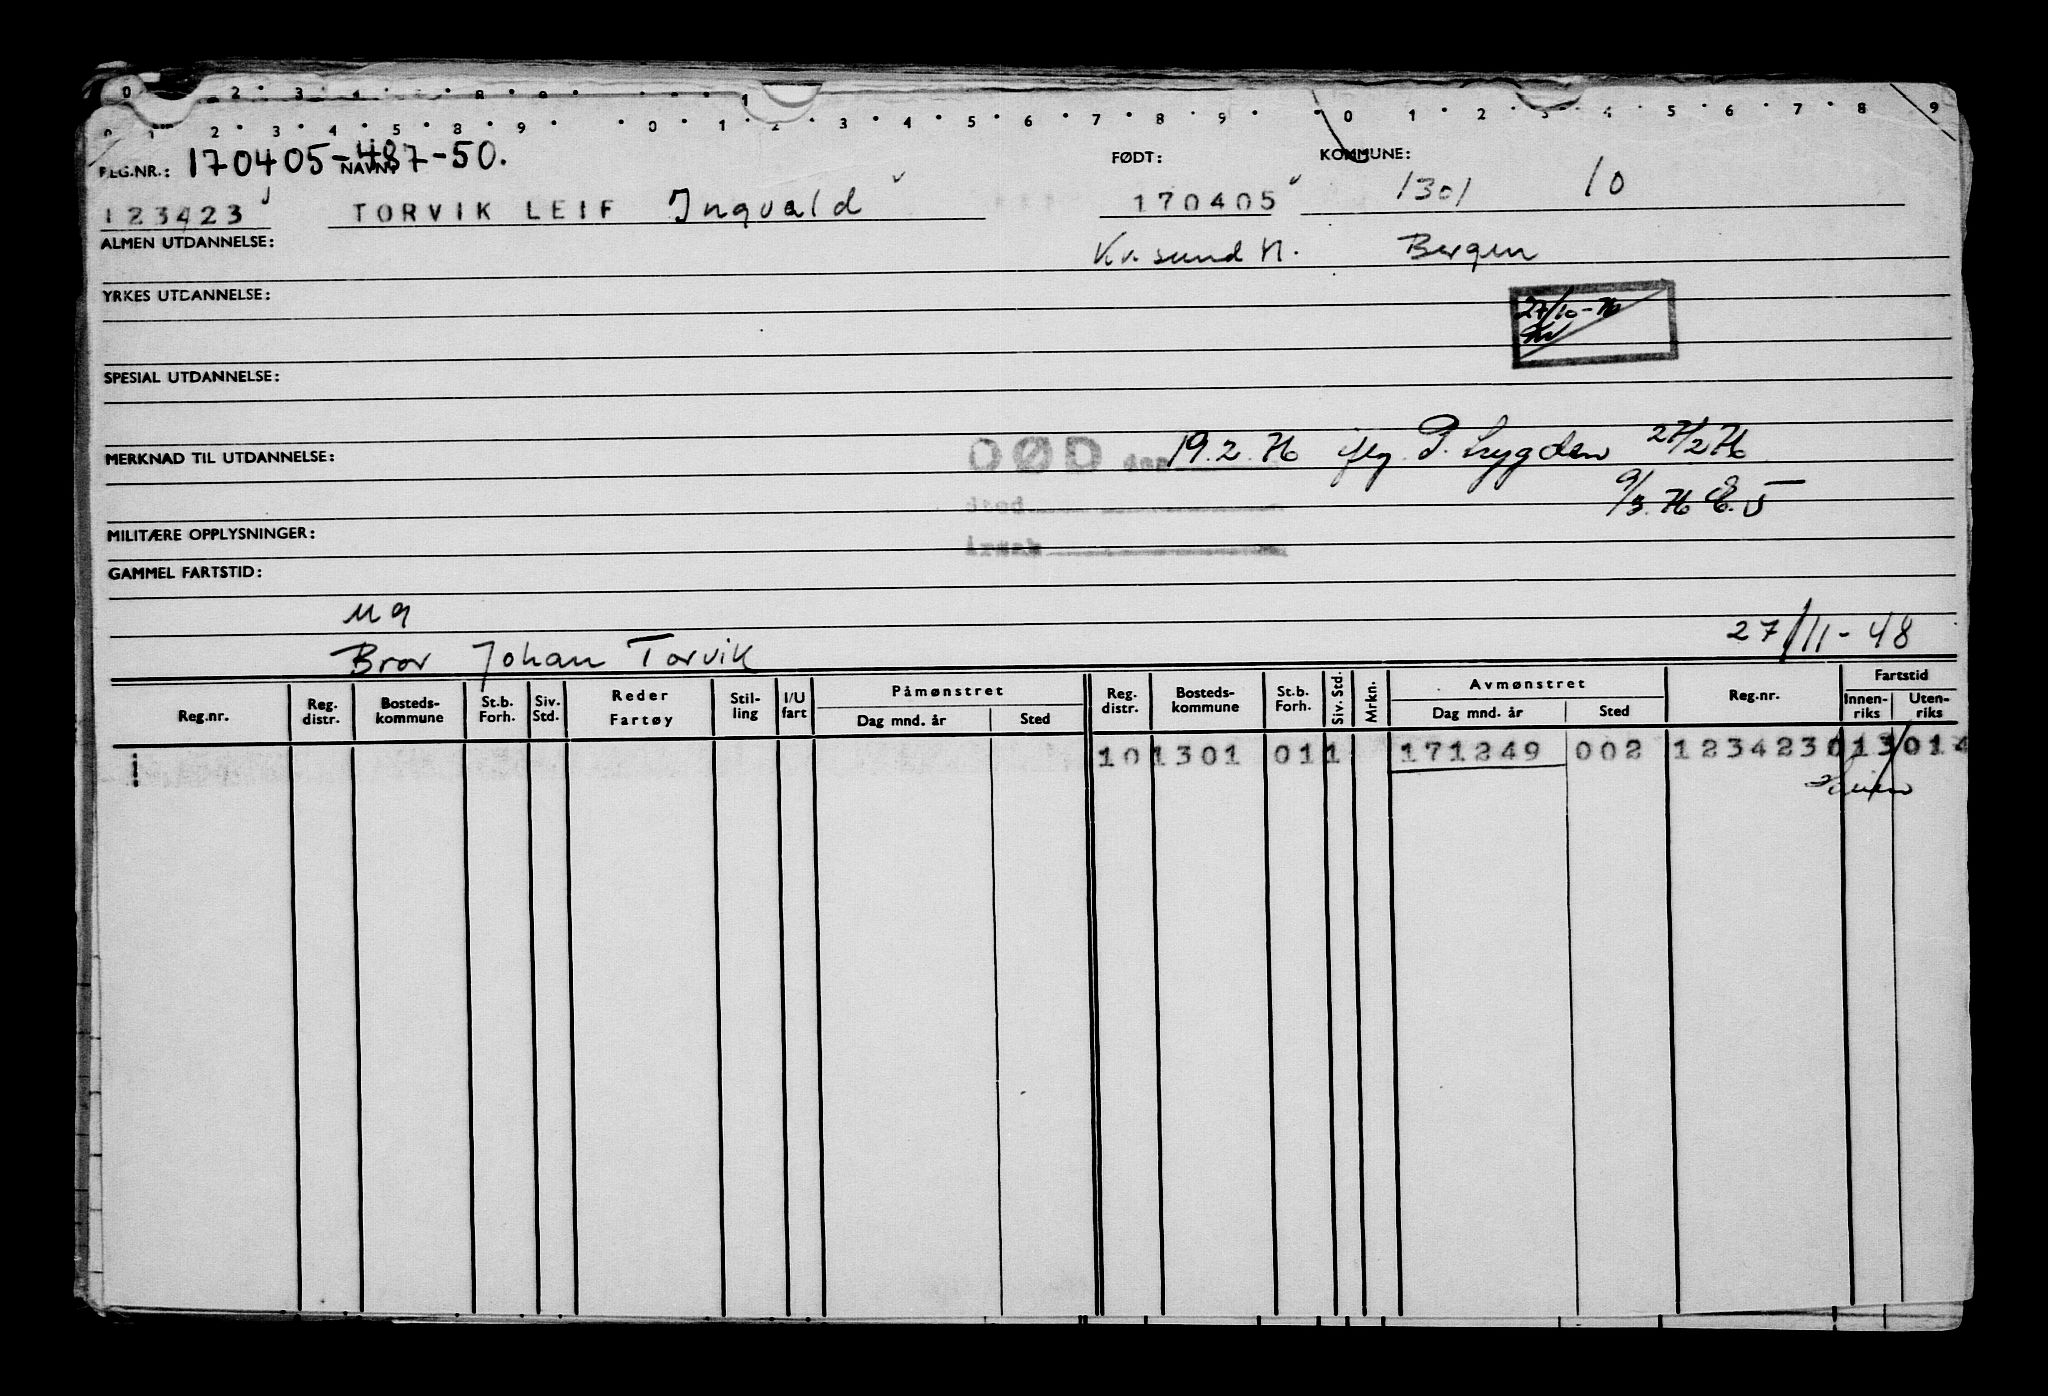 0 2 3 4 8 9 1
0 1 2 3 4 5 8 9 0 1 2 3 4 5 6 7 8 9 0 1 2 3 4 5 6 7 8 9
REG.NR.: 170405-487-50. NAVN: FØDT: KOMMUNE:
123423 TORVIK LEIF Ingvald 170405 1301 10
ALMEN UTDANNELSE: Kr.sund N. Bergen
YRKES UTDANNELSE: 27/10-76
SPESIAL UTDANNELSE:
DØD den 19.2.76 iflg P. Lygden 27/2 76
MERKNAD TIL UTDANNELSE:
9/3.76
MILITÆRE OPPLYSNINGER:
GAMMEL FARTSTID:
ug
27/11-48
Bror Johan Torvik
Reg.nr. Reg. distr. Bosteds-kommune St.b. Forh. Siv. Std. Reder Fartøy Stil-ling I/U fart Påmønstret Dag mnd. år Sted Reg. distr. Bosteds-kommune St.b. Forh. Siv. Std. Mrkn. Avmønstret Dag mnd. år Sted Reg.nr. Fartstid Innen-riks Uten-riks
10 1301 011 171249 002 123423 013 014